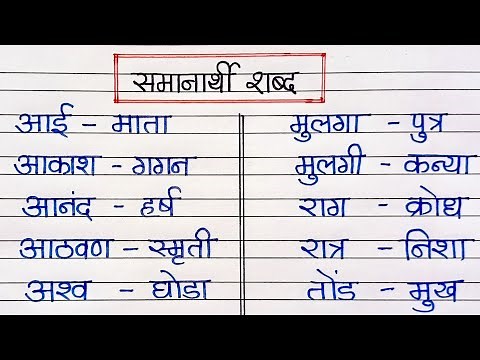 समानार्थी शब्द
आई - माता
आकाश - गगन
आनंद - हर्ष
आठवण - स्मृती
अश्व - घोडा
मुलगा - पुत्र
मुलगी - कन्या
राग - क्रोध
रात्र - निशा
तोंड - मुख